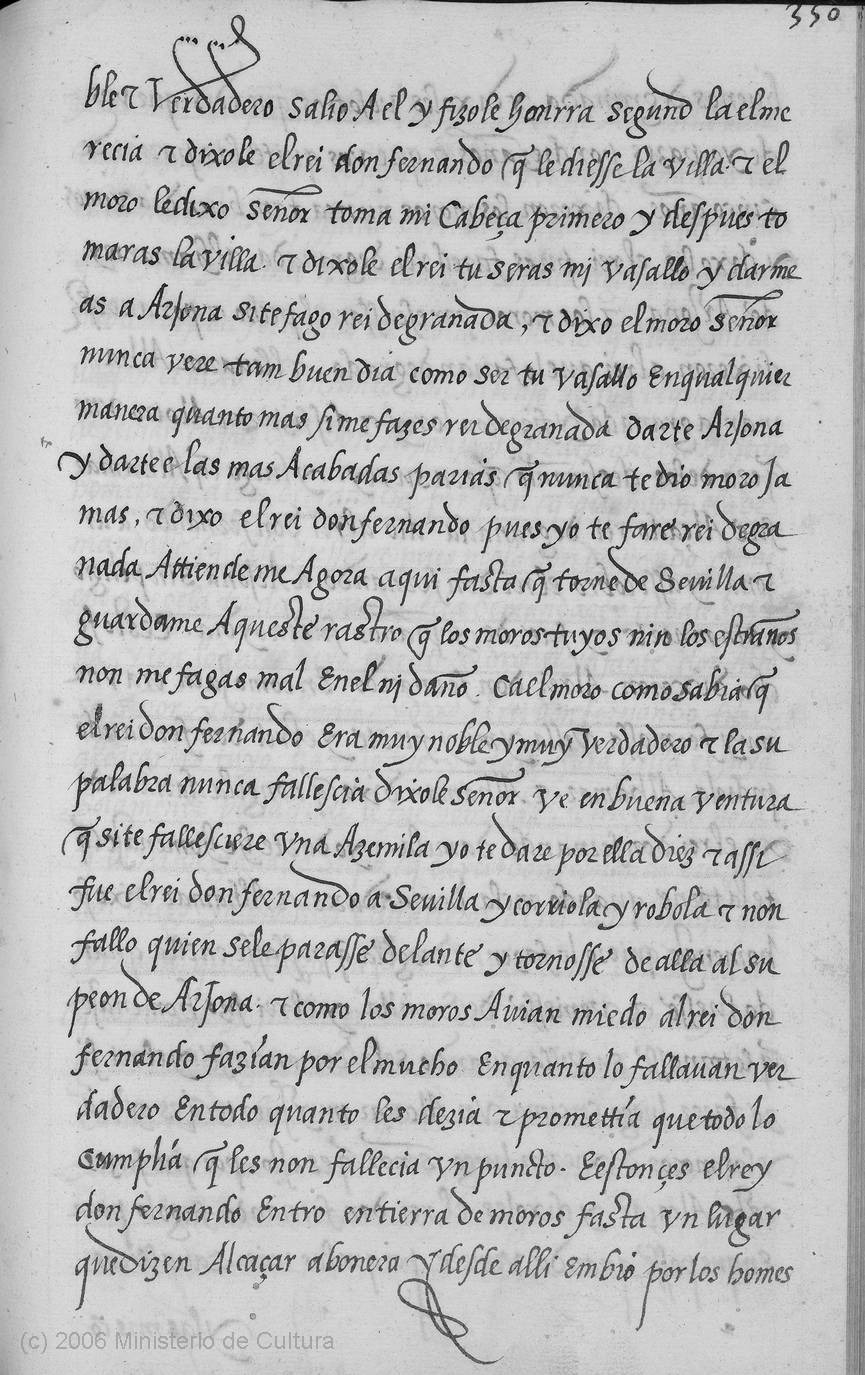 350
ble ⁊ Verdadero salio A el y fizole honrra segund la el me
recia ⁊ dixole el rei don fernando q̃ le diesse la villa. ⁊ el
moro le dixo señor toma mi Cabeça primero y despues to
maras la villa. ⁊ dixole el rei tu seras mj vasallo y darme
as a Arjona si te fago rei de granada, ⁊ dixo el moro señor
nunca vere tam buen dia como ser tu vasallo En qual quier
manera quanto mas si me fazes rei de granada darte Arjona
y darte e las mas Acabadas parias q̃ nunca te dio moro Ja
mas, ⁊ dixo el rei don fernando pues yo te fare rei de gra
nada Attiende me Agora aqui fasta q̃ torne de Sevilla ⁊
guardame Aqueste rastro q̃ los moros tuyos nin los estraños
non me fagas mal En el nj daño. Ca el moro como sabia q̃
el rei don fernando Era muy noble y muy Verdadero ⁊ la su
palabra nunca fallescia dixole señor ve en buena ventura
q̃ si te fallesciere vna Azemila yo te dare por ella diez ⁊ assi
fue el rei don fernando a Sevilla y corriola y robola ⁊ non
fallo quien se le parasse delante y tornosse de alla al su
peon de Arjona. ⁊ como los moros Avian miedo al rei don
fernando fazian por el mucho En quanto lo fallauan ver
dadero En todo quanto les dezia ⁊ promettia que todo lo
Cumplia q̃ les non fallecia vn puncto. Eestonçes el rey
don fernando Entro en tierra de moros fasta vn lugar
que dizen Alcaçar abonera y desde alli Embio por los homes
(c) 2006 Ministerio de Cultura